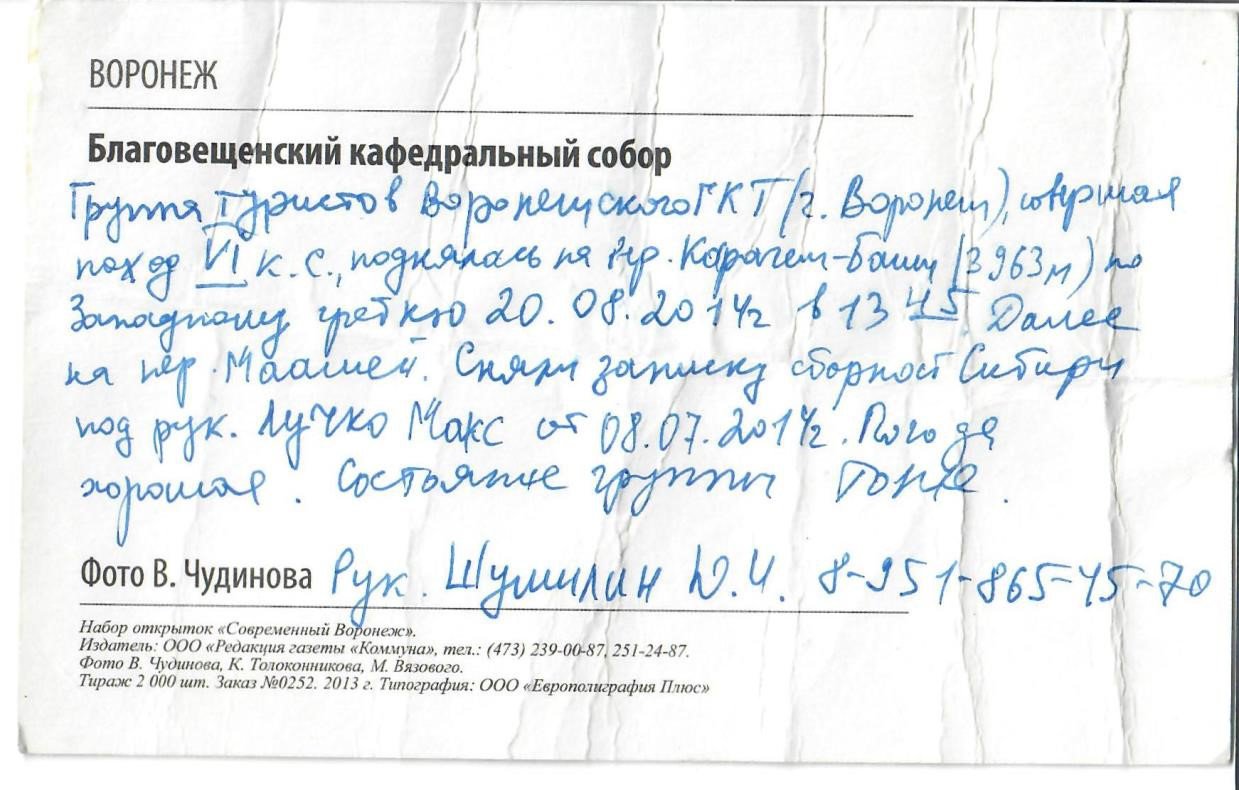 ВОРОНЕЖ
Благовещенский кафедральный собор
Группа туристов Воронежского ГКТ (г. Воронеж), совершая
поход VI к.с., поднялась на вер. Карагем-Баши (3963м) по
Западному гребню 20.08.2014г в 13 45. Далее
на пер. Маашей. Сняли записку сборной Сибири
под рук. Лучко Макс от 08.07.2014г. Погода
хорошая. Состояние группы тоже.
Фото В. Чудинова Рук. Шумилин Ю.И. 8-951-865-45-70
Набор открыток «Современный Воронеж».
Издатель: ООО «Редакция газеты «Коммуна», тел.: (473) 239-00-87, 251-24-87.
Фото В. Чудинова, К. Толоконникова, М. Вязового.
Тираж 2 000 шт. Заказ №0252. 2013 г. Типография: ООО «Европолиграфия Плюс»